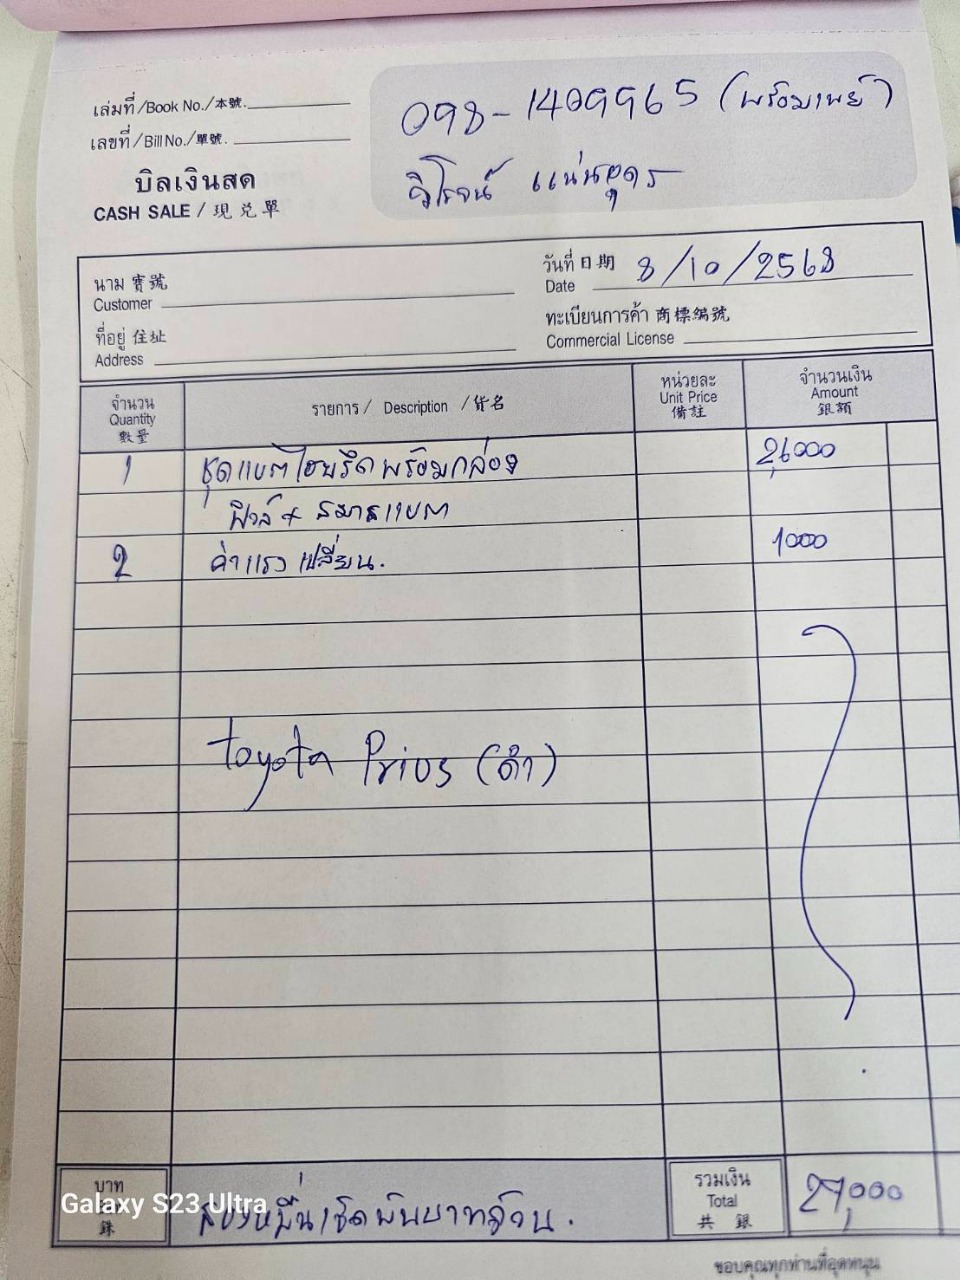 เล่มที่/Book No./本號.
098-1409965 (พร้อมเพย์)
เลขที่/Bill No./單號.
วิโรจน์ แน่นอุดร
บิลเงินสด
CASH SALE / 現兌單
นาม 寶號
Customer
วันที่ 日期
Date
8/10/2568
ที่อยู่ 住址
Address
ทะเบียนการค้า 商標編號
Commercial License
จำนวน
Quantity
數量
รายการ / Description / 貨名
หน่วยละ
Unit Price
備註
จำนวนเงิน
Amount
銀額
1 ชุดแบตไฮบริดพร้อมกล่อง 26000
ฟิวส์ + สมารทแบต
2 ค่าแรงเปลี่ยน. 1000
toyota Prius (ดำ)
บาท
銖
สองหมื่นเจ็ดพันบาทถ้วน.
รวมเงิน
Total
共 銀
27,000
Galaxy S23 Ultra
ขอบคุณทุกท่านที่อุดหนุน